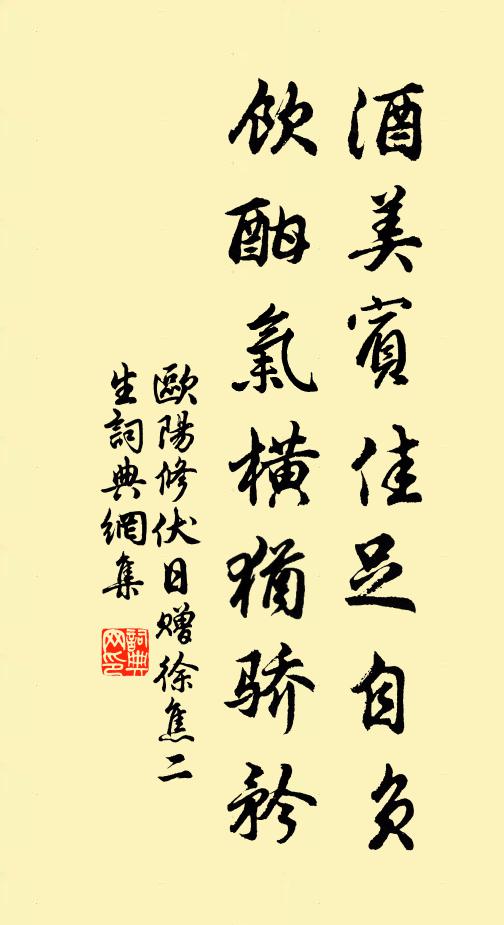 酒美賓佳足自負
飲酣氣橫猶驕矜
歐陽修伏日赠徐焦二
生詞典網集
詞典
网印